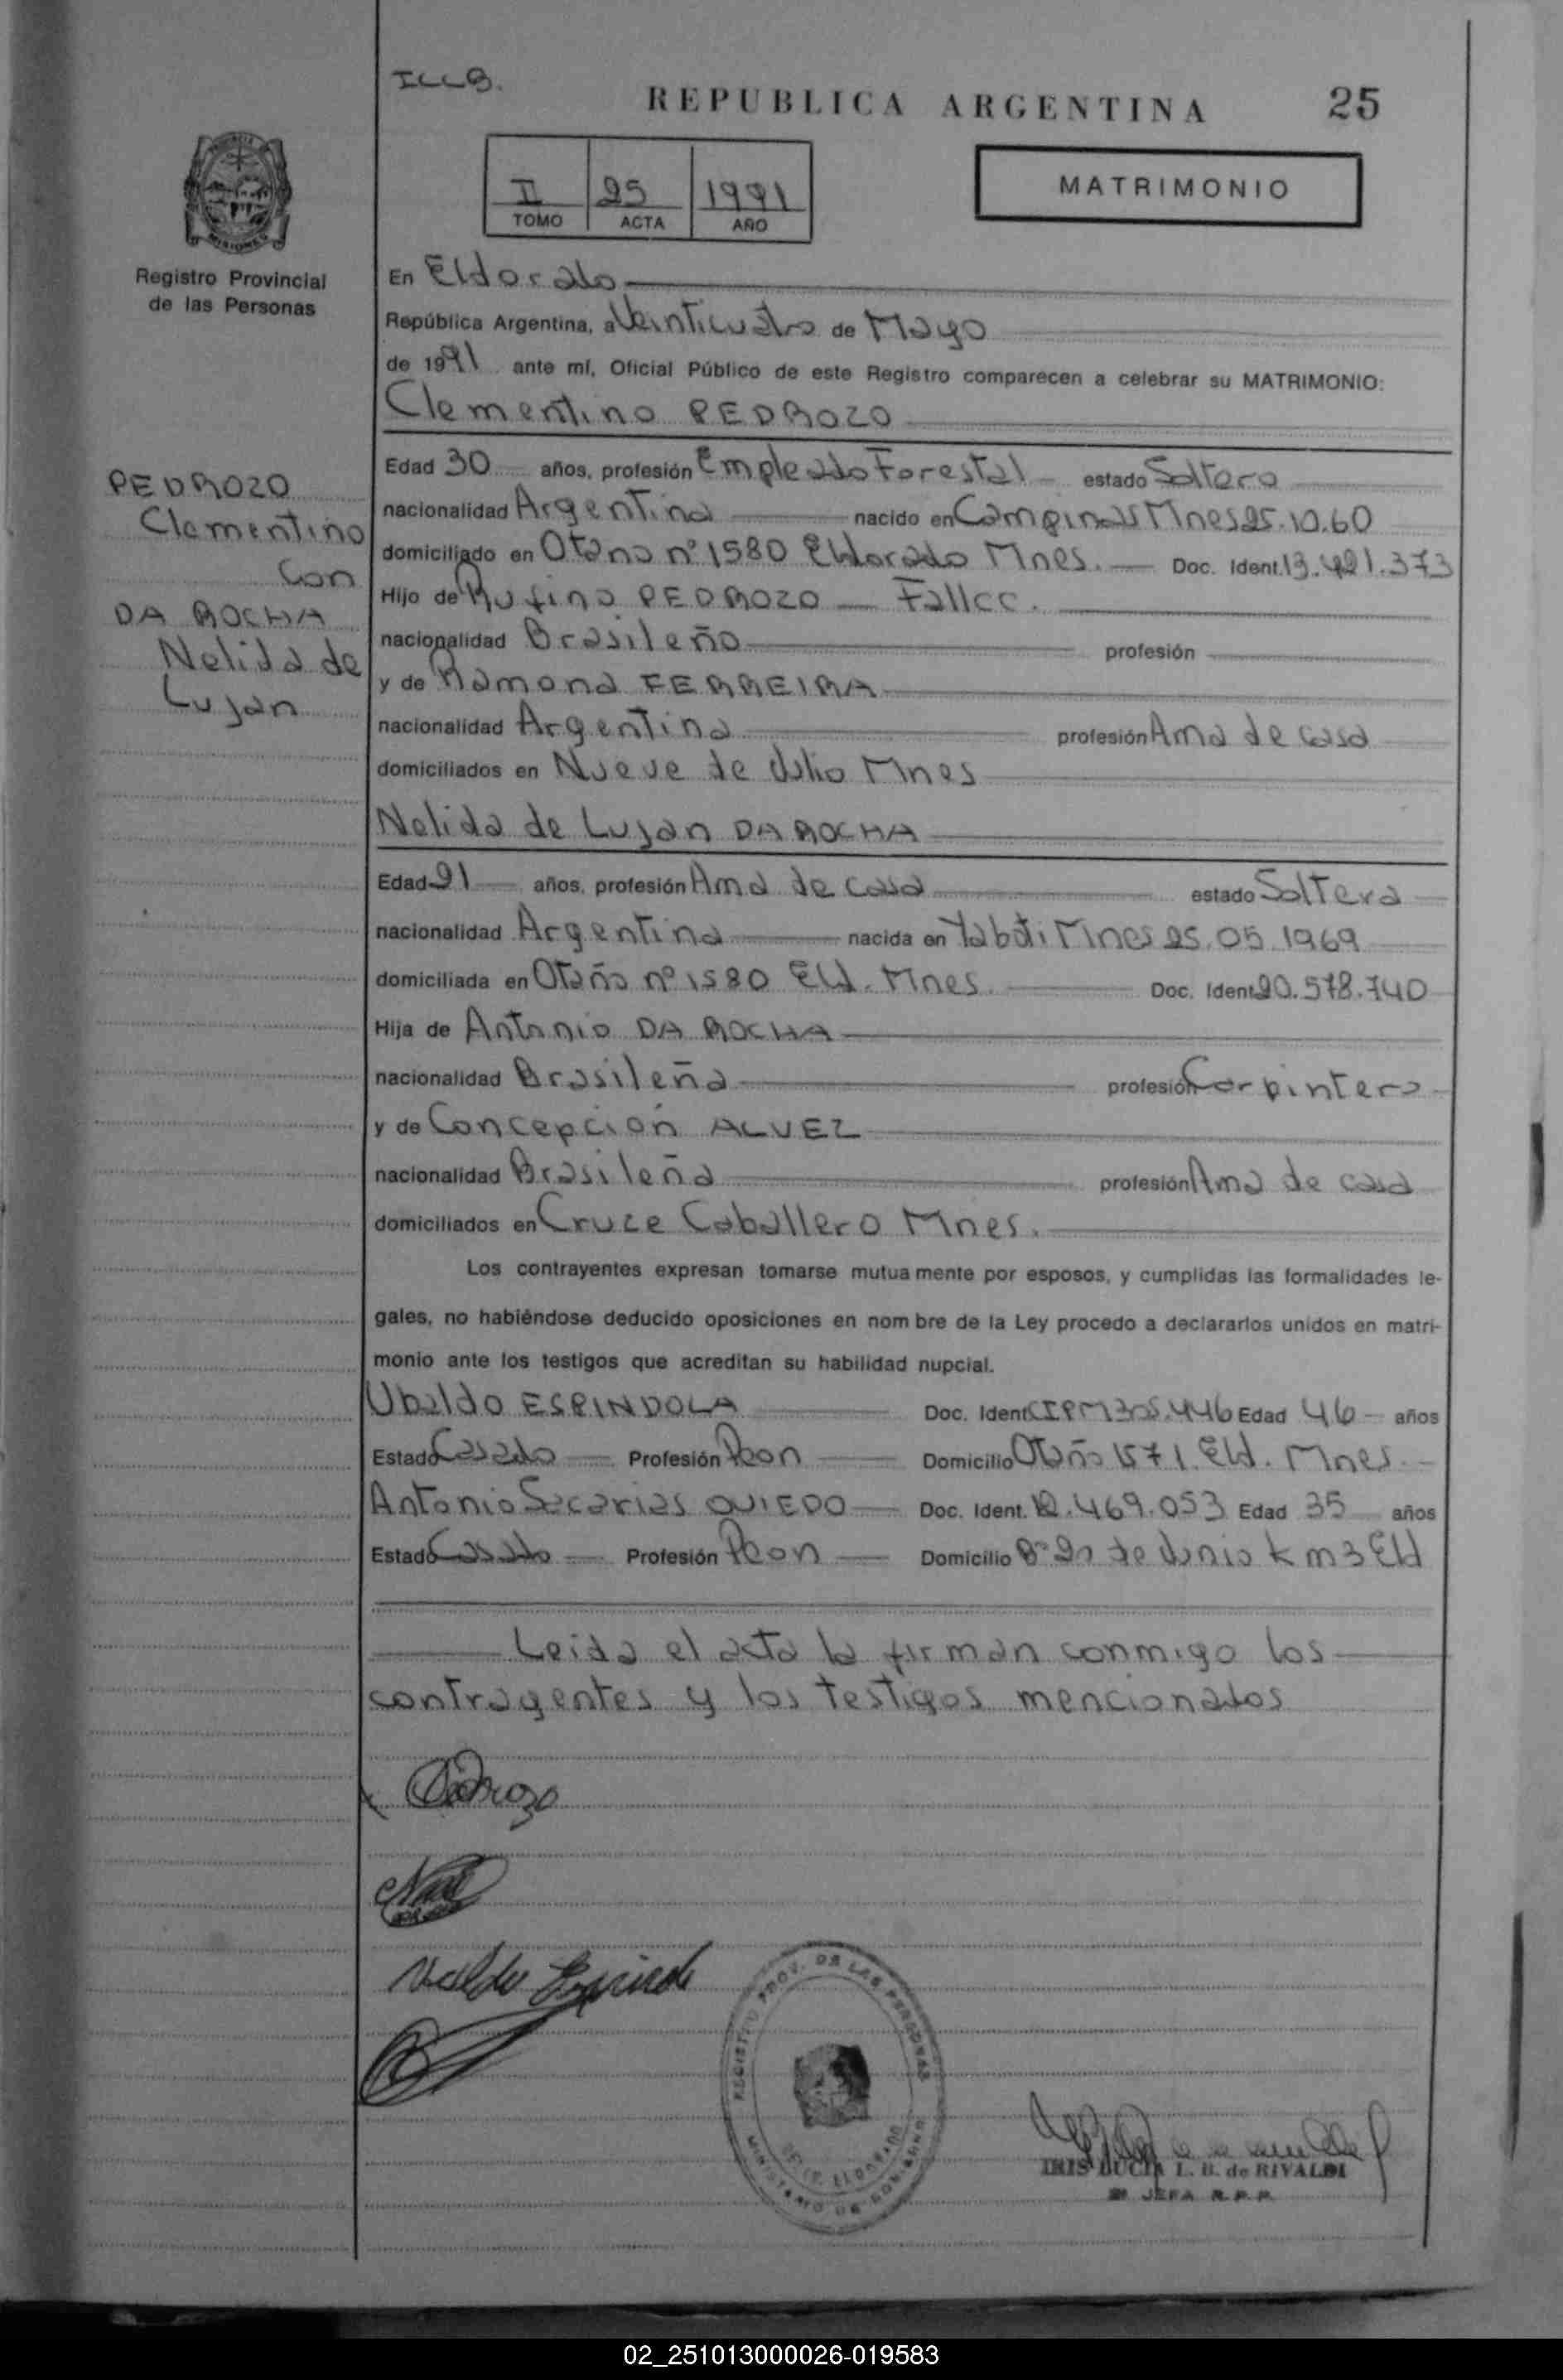 ILLB.
REPUBLICA ARGENTINA 25
II 25 1991
TOMO ACTA AÑO
MATRIMONIO
MISIONES
Registro Provincial
de las Personas
En Eldorado
República Argentina, a Veinticuatro de Mayo
de 1991 ante mí, Oficial Público de este Registro comparecen a celebrar su MATRIMONIO:
Clementino PEDROZO
PEDROZO
Clementino
con
DA ROCHA
Nelida de
Lujan
Edad 30 años, profesión Empleado Forestal estado Soltero
nacionalidad Argentina nacido en Campinas Mnes 25.10.60
domiciliado en Otaño nº 1580 Eldorado Mnes. Doc. Ident. 13.421.373
Hijo de Rufino PEDROZO Fallec.
nacionalidad Brasileño profesión
y de Ramona FERREIRA
nacionalidad Argentina profesión Ama de casa
domiciliados en Nueve de Julio Mnes
Nelida de Lujan DA ROCHA
Edad 21 años, profesión Ama de casa estado Soltera
nacionalidad Argentina nacida en Yaboti Mnes 25.05.1969
domiciliada en Otaño nº 1580 Eld. Mnes. Doc. Ident. 20.578.740
Hija de Antonio DA ROCHA
nacionalidad Brasileña profesión Carpintero
y de Concepción ALVEZ
nacionalidad Brasileña profesión Ama de casa
domiciliados en Cruce Caballero Mnes.
Los contrayentes expresan tomarse mutua mente por esposos, y cumplidas las formalidades le-
gales, no habiéndose deducido oposiciones en nom bre de la Ley procedo a declararlos unidos en matri-
monio ante los testigos que acreditan su habilidad nupcial.
Ubaldo ESPINDOLA Doc. Ident. CIPM 305.446 Edad 46 años
Estado Casado Profesión Peon Domicilio Otaño 1571. Eld. Mnes.
Antonio Sacarias OVIEDO Doc. Ident. 12.469.053 Edad 35 años
Estado Casado Profesión Peon Domicilio Bº 20 de Junio km 3 Eld
Leida el acta la firman conmigo los
contrayentes y los testigos mencionados
Pedrozo
REGISTRO PROV. DE LAS PERSONAS
MINISTERIO DE GOBIERNO
IRIS LUCIA L. B. de RIVALDI
JEFA R.P.P.
02_251013000026-019583